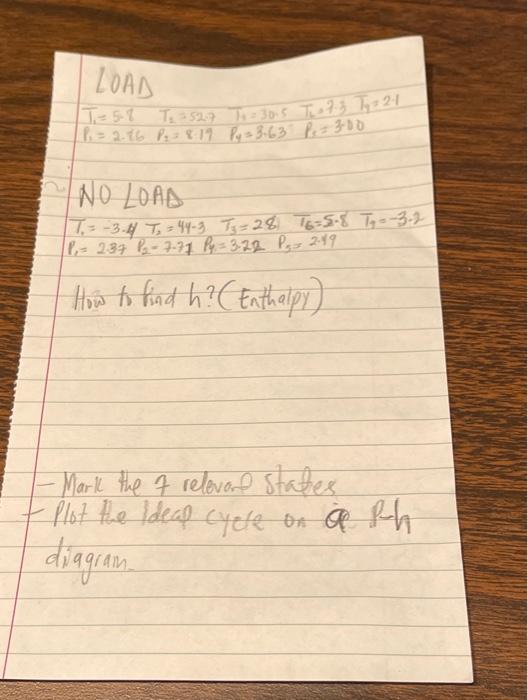 LOAD
T₁= 5.8 T₂=52.7 T₃=30.5 T₆=7.3 T₇=2.1
P₁= 2.86 P₂=8.19 P₄=3.63 P₅=3.00
NO LOAD
T₁= -3.4 T₂=44.3 T₃=28 T₆=5.8 T₇=-3.2
P₁= 2.37 P₂=7.71 P₄=3.22 P₅=2.49
How to find h? (Enthalpy)
- Mark the 7 relevant states
- Plot the Ideal cycle on a P-h
diagram.